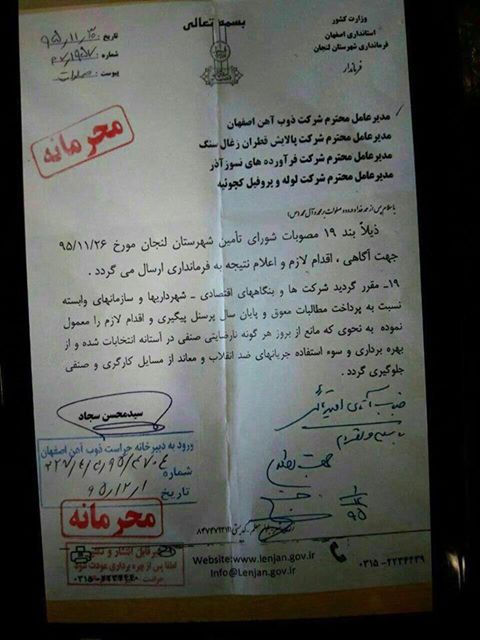 بسمه تعالی
وزارت کشور
استانداری اصفهان
فرمانداری شهرستان لنجان
فرماندار
تاریخ : ۹۵،۱۱،۳۰
شماره :
پیوست :
محرمانه
مدیرعامل محترم شرکت ذوب آهن اصفهان
مدیرعامل محترم شرکت پالایش قطران زغال سنگ
مدیرعامل محترم شرکت فرآورده های نسوزآذر
مدیرعامل محترم شرکت لوله و پروفیل کجوئیه
ذیلاً بند ۱۹ مصوبات شورای تأمین شهرستان لنجان مورخ ۹۵/۱۱/۲۶
جهت آگاهی ، اقدام لازم و اعلام نتیجه به فرمانداری ارسال می گردد .
۱۹ـ مقرر گردید شرکت ها و بنگاههای اقتصادی ـ شهرداریها و سازمانهای وابسته
نسبت به پرداخت مطالبات معوق و پایان سال پرسنل پیگیری و اقدام لازم را معمول
نموده به نحوی که مانع از بروز هر گونه نارضایتی صنفی در آستانه انتخابات شده و از
بهره برداری و سوء استفاده جریانهای ضد انقلاب و معاند از مسایل کارگری و صنفی
جلوگیری گردد .
سیدمحسن سجاد
ورود به دبیرخانه حراست ذوب آهن اصفهان
شماره
تاریخ ۹۵،۱۲،۱
محرمانه
غیر قابل انتشار و تکثیر
لطفا پس از بهره برداری عودت شود
Website:www.lenjan.gov.ir
Info@Lenjan.gov.ir
۰۳۱۵-۲۲۳۴۴۳۹